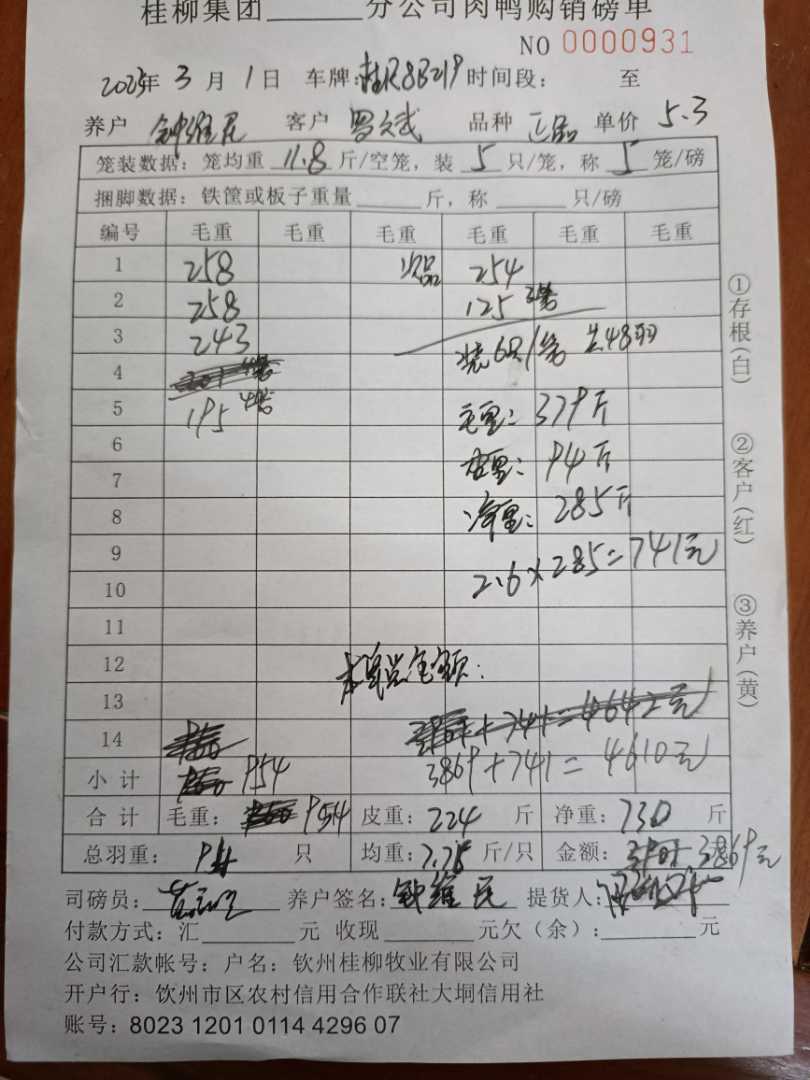 桂柳集团______分公司肉鸭购销磅单
NO 0000931
2025年 3 月 1 日 车牌:桂R8B219 时间段: 至
养户 钟维民 客户 罗文武 品种 正品 单价 5.3
笼装数据: 笼均重 11.8 斤/空笼, 装 5 只/笼, 称 5 笼/磅
捆脚数据: 铁筐或板子重量______斤, 称______只/磅
编号 毛重 毛重 毛重 毛重 毛重 毛重
1 258 次品 254
2 258 125 3笼
3 243 装6只/笼 共48羽
4
5 195 4笼 毛重: 379斤
6 皮重: 94斤
7
8 净重: 285斤
9 2.6×285=741元
10
11
12 本单总金额:
13 +741=4642元
14 3869+741=4610元
小计 954
合计 毛重: 954 皮重: 224 斤 净重: 730 斤
总羽重: 94 只 均重: 7.75 斤/只 金额: 3869元
司磅员: 养户签名: 钟维民 提货人:
付款方式: 汇______元 收现______元欠(余):______元
公司汇款帐号: 户名: 钦州桂柳牧业有限公司
开户行: 钦州市区农村信用合作联社大垌信用社
账号: 8023 1201 0114 4296 07
①存根(白)
②客户(红)
③养户(黄)